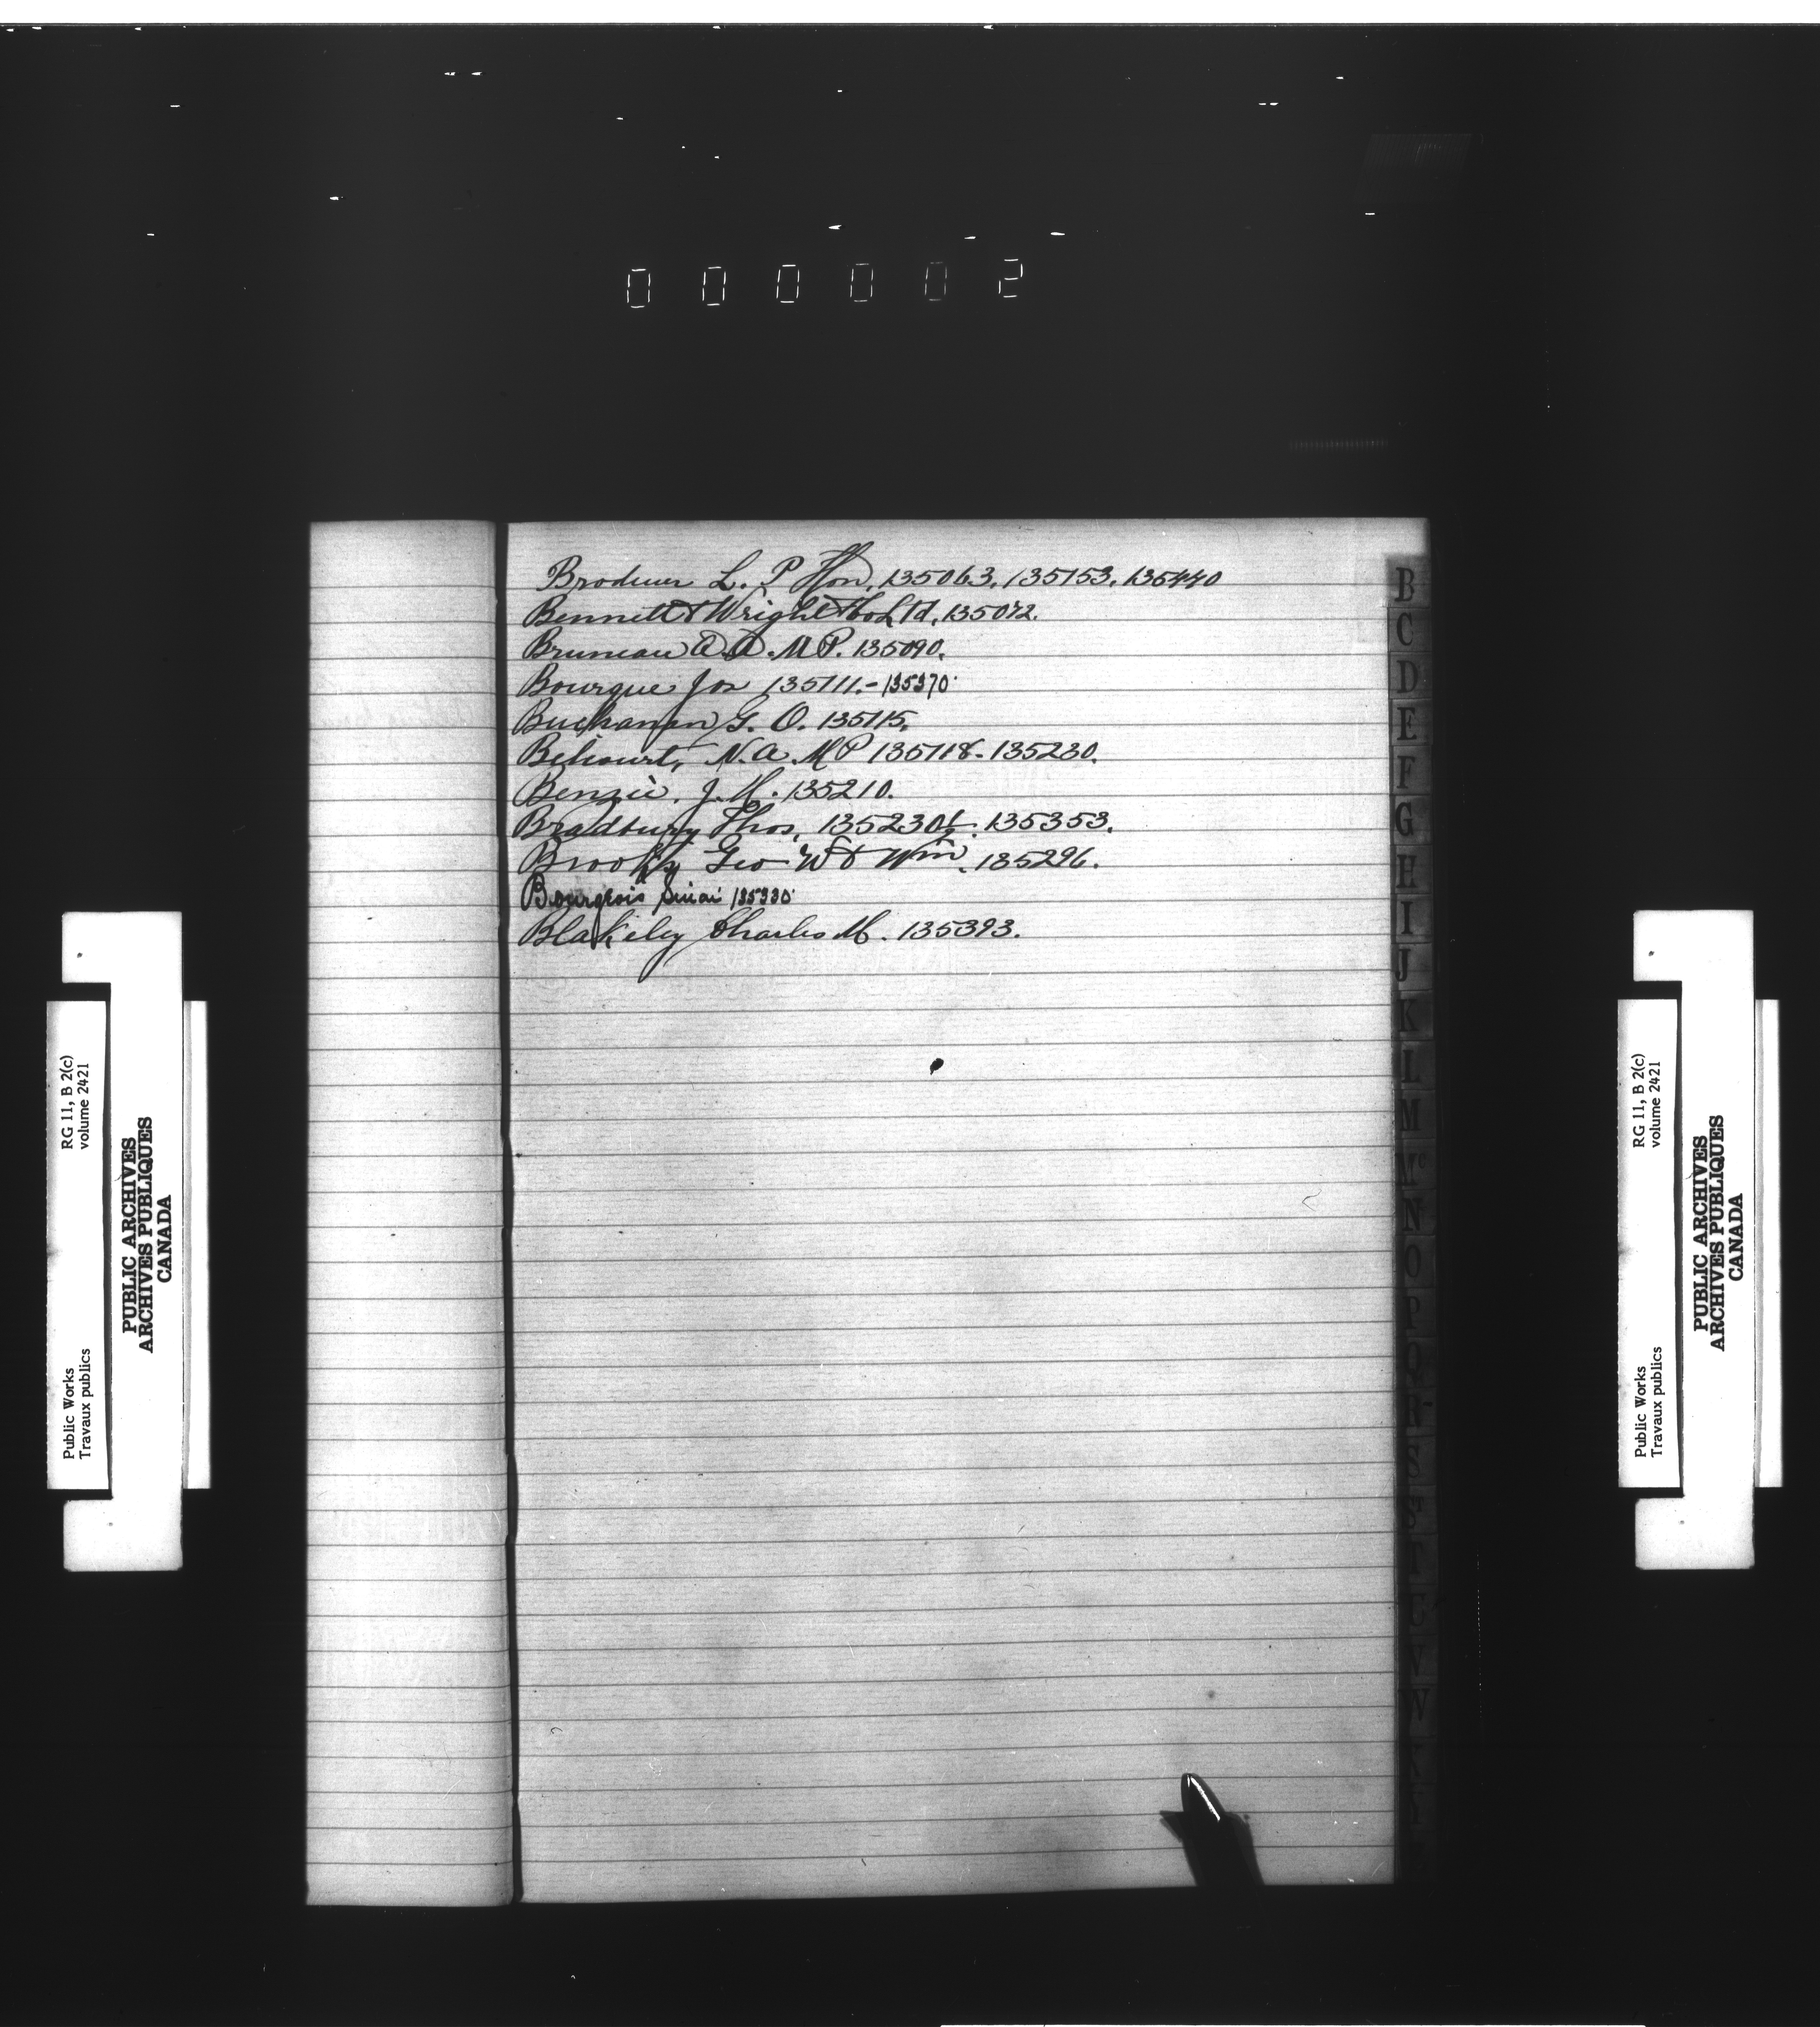 000002
Brodeur L. P Hon. 135063. 135153. 135440
Bennett & Wright Co Ltd. 135072.
Bruneau A. A. M.P. 135090.
Bourque Jos 135111. - 135370
Buchanan G. O. 135115.
Belcourt, N. A. M P 135118. 135230.
Benzie. J. H. 135210.
Bradbury Thos. 135230½. 135353.
Brooks Geo W & Wm. 135296.
Bourgeois 135330
Blakeley Charles M. 135393.
B
C
D
E
F
G
H
I
J
K
L
M
Mc
N
O
P
Q
R
S
T
U
V
W
Public Works
Travaux publics
RG 11, B 2(c)
volume 2421
PUBLIC ARCHIVES
ARCHIVES PUBLIQUES
CANADA
Public Works
Travaux publics
RG 11, B 2(c)
volume 2421
PUBLIC ARCHIVES
ARCHIVES PUBLIQUES
CANADA